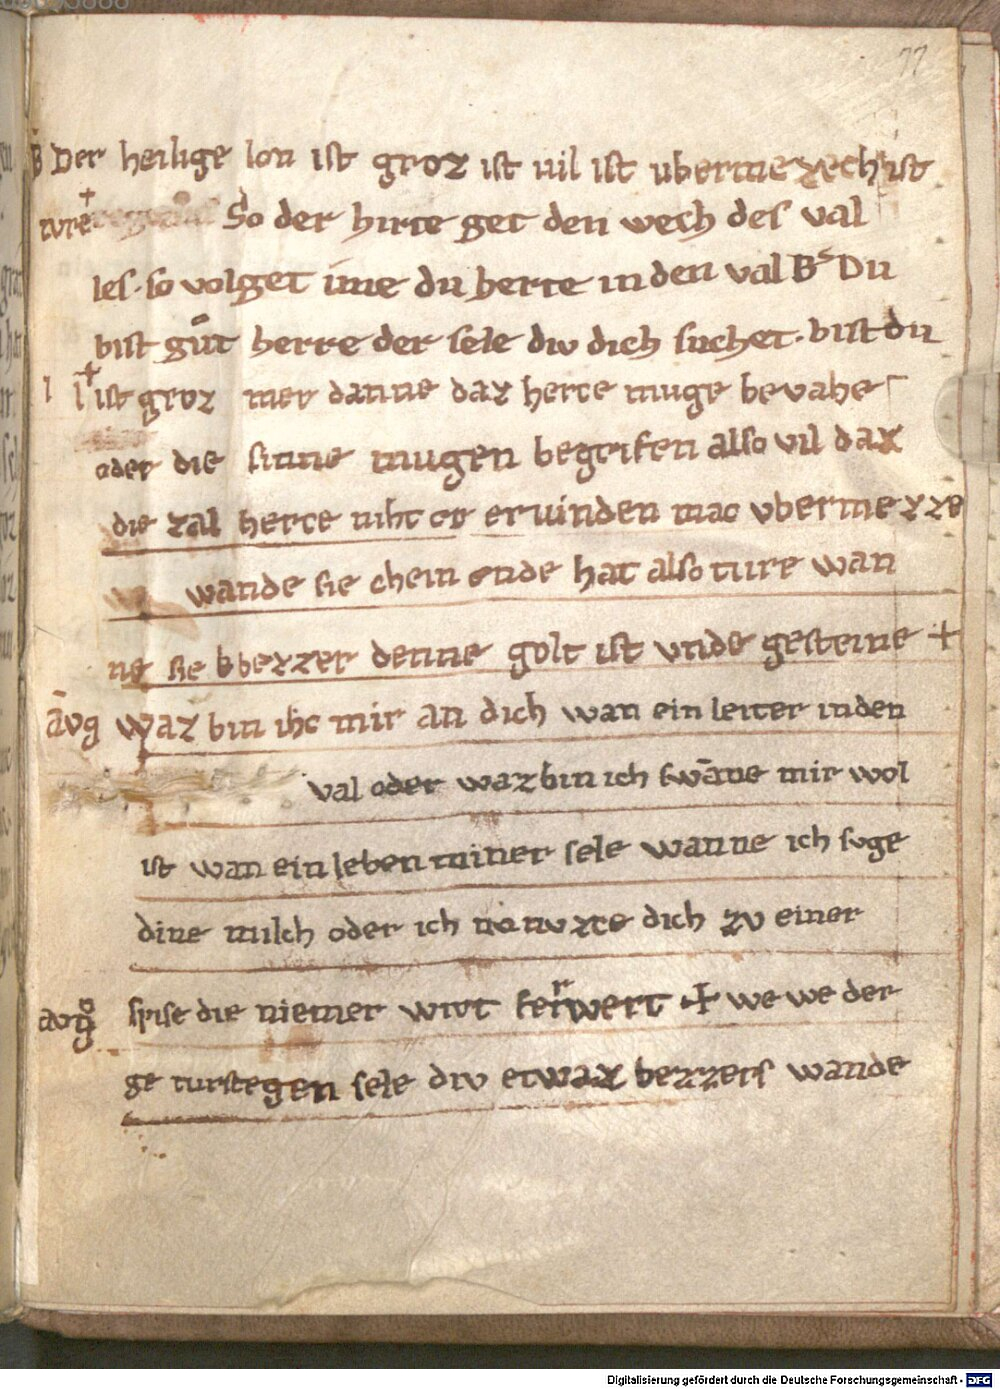 77
B Der heilige lon ist groz ist uil ist ubermezech ist
ture So der hirte get den wech des val
les. so volget ime du herte in den val Bs Du
bist gůt herre der sele div dich suchet. bist du
l ist groz mer danne daz herce muge bevahe
oder die sinne mugen begrifen also vil daz
die zal herce niht er ervinden mac vbermezze
wande sie chein ende hat also ture wan
ne sie bbezzer denne golt ist vnde gesteine +
āvg waz bin ihc mir an dich wan ein leiter inden
val oder waz bin ich swāne mir wol
ist wan ein leben miner sele wanne ich svge
dine milch oder ich dich zv einer
avg spise die niemer wirt ferwert + we we der
ge turstegen sele div etwaz bezzers wande
Digitalisierung gefördert durch die Deutsche Forschungsgemeinschaft - DFG